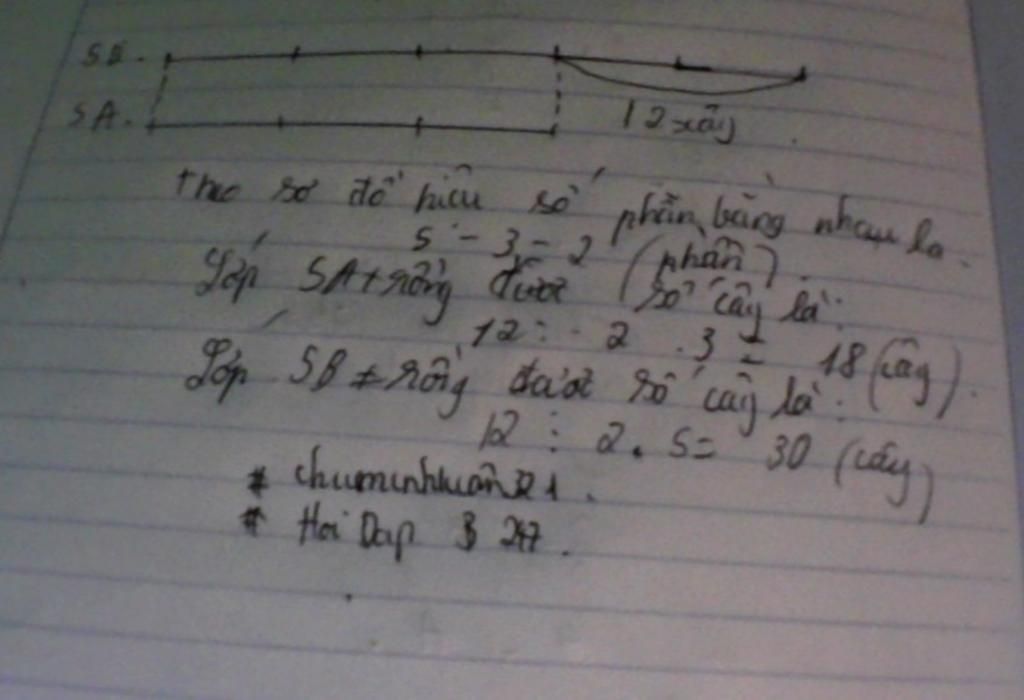 5B.
5A.
12 cây
theo sơ đồ hiệu số phần bằng nhau là.
5 - 3 = 2 (phần)
Lớp 5A trồng được số cây là:
12 : 2 . 3 = 18 (cây).
Lớp 5B trồng được số cây là:
12 : 2 . 5 = 30 (cây)
# chuminhtuấn321.
# Hoi Dap 247.